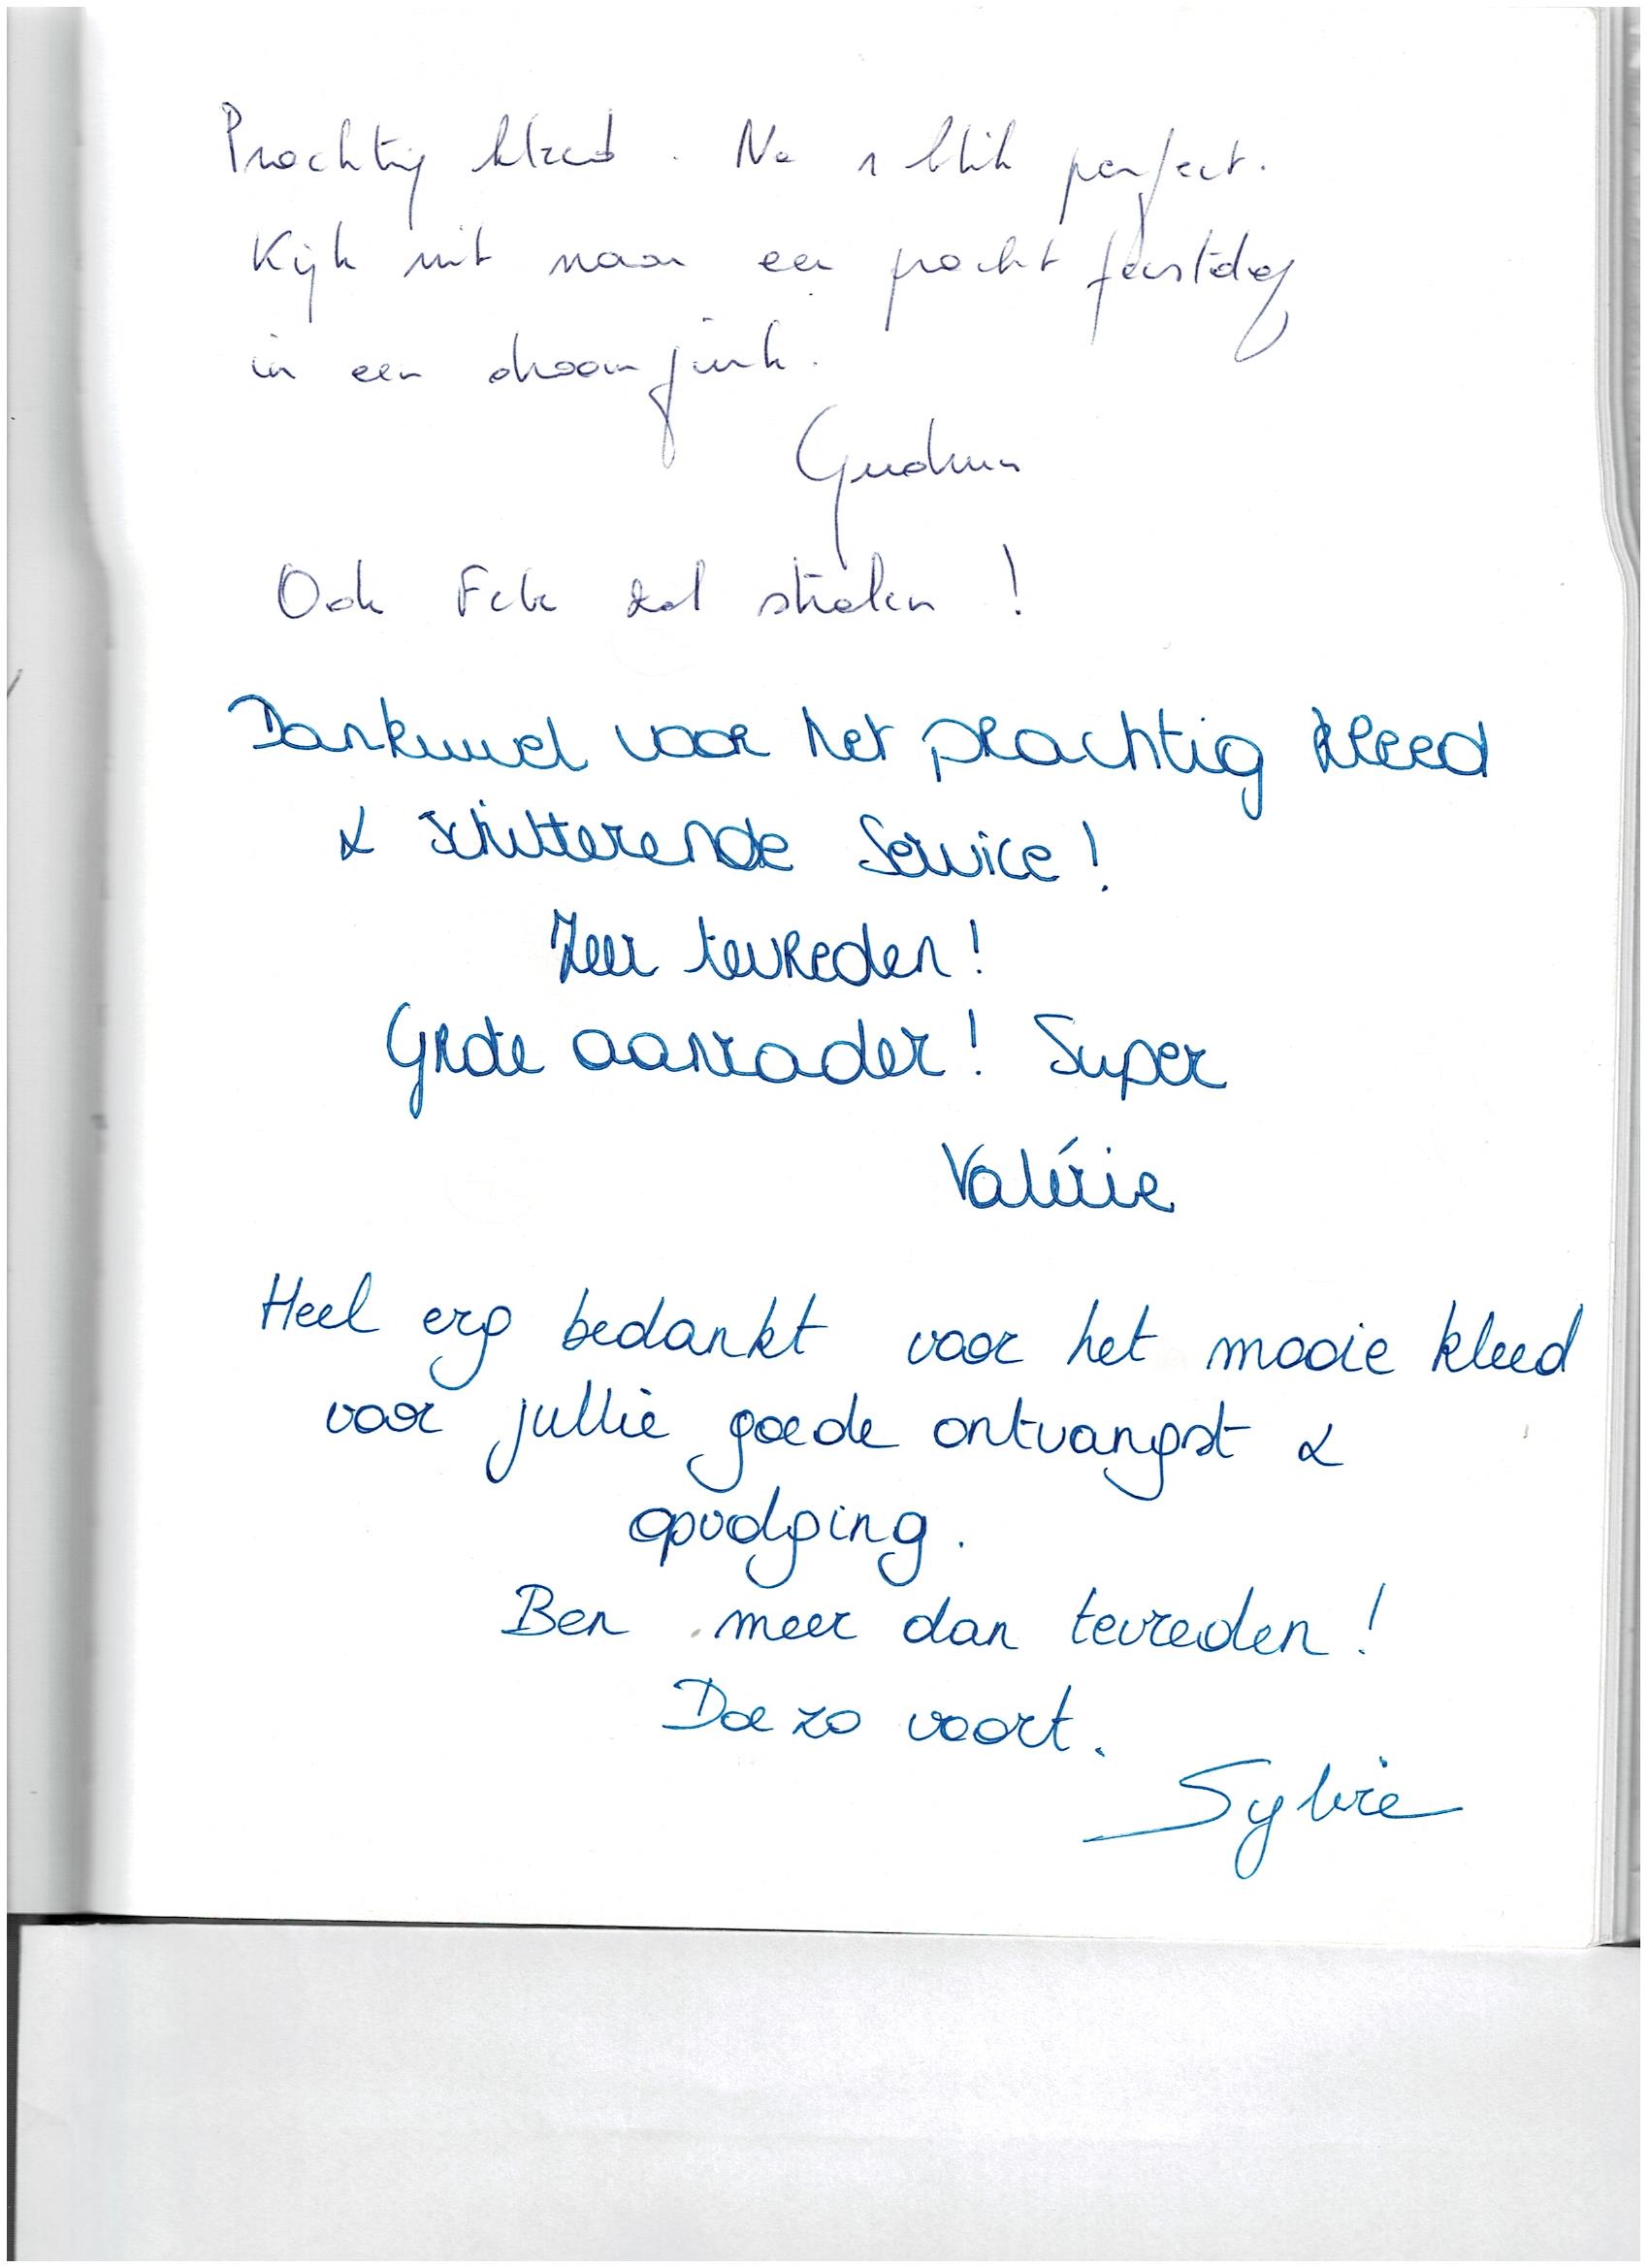 Prachtig kleed. Na 1 blik perfect.
Kijk uit naar een pracht feestdag
in een droomjurk.
Gudrun
Ook zal stralen !
Dankuwel voor het prachtig kleed
& schitterende Service!
Zeer tevreden!
Grote aanrader! Super
Valérie
Heel erg bedankt voor het mooie kleed
voor jullie goede ontvangst &
opvolging.
Ben meer dan tevreden !
Doe zo voort.
Sylvie